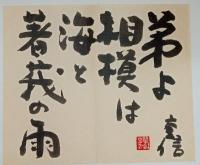 弟よ
相模は
海と
著莪の雨